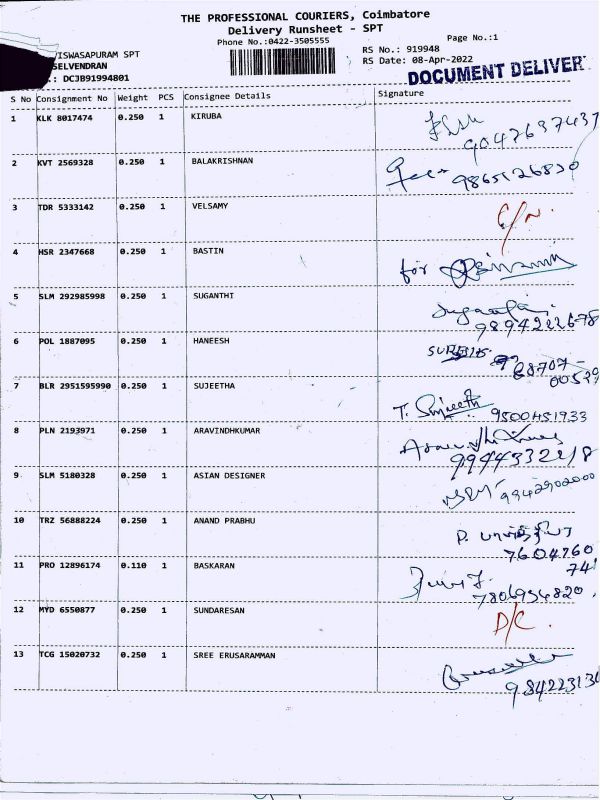 THE PROFESSIONAL COURIERS, Coimbatore
Delivery Runsheet - SPT
Phone No.:0422-3505555
Page No.:1
ISWASAPURAM SPT
RS No.: 919948
SELVENDRAN
RS Date: 08-Apr-2022
.: DCJB91994801
DOCUMENT DELIVER
S No Consignment No Weight PCS Consignee Details Signature
1 KLK 8017474 0.250 1 KIRUBA
9047637437
2 KVT 2569328 0.250 1 BALAKRISHNAN
9865126830
3 TDR 5333142 0.250 1 VELSAMY
C/N.
4 HSR 2347668 0.250 1 BASTIN
for
5 SLM 292985998 0.250 1 SUGANTHI
9894222678
6 POL 1887095 0.250 1 HANEESH
7 BLR 2951595990 0.250 1 SUJEETHA
T. Sujeeth 9500451933
8 PLN 2193971 0.250 1 ARAVINDHKUMAR
9944332218
9 SLM 5180328 0.250 1 ASIAN DESIGNER
9942902000
10 TRZ 56888224 0.250 1 ANAND PRABHU
7604760
74
11 PRO 12896174 0.110 1 BASKARAN
7806954820
12 MYD 6550877 0.250 1 SUNDARESAN
D/C.
13 TCG 15020732 0.250 1 SREE ERUSARAMMAN
984223130